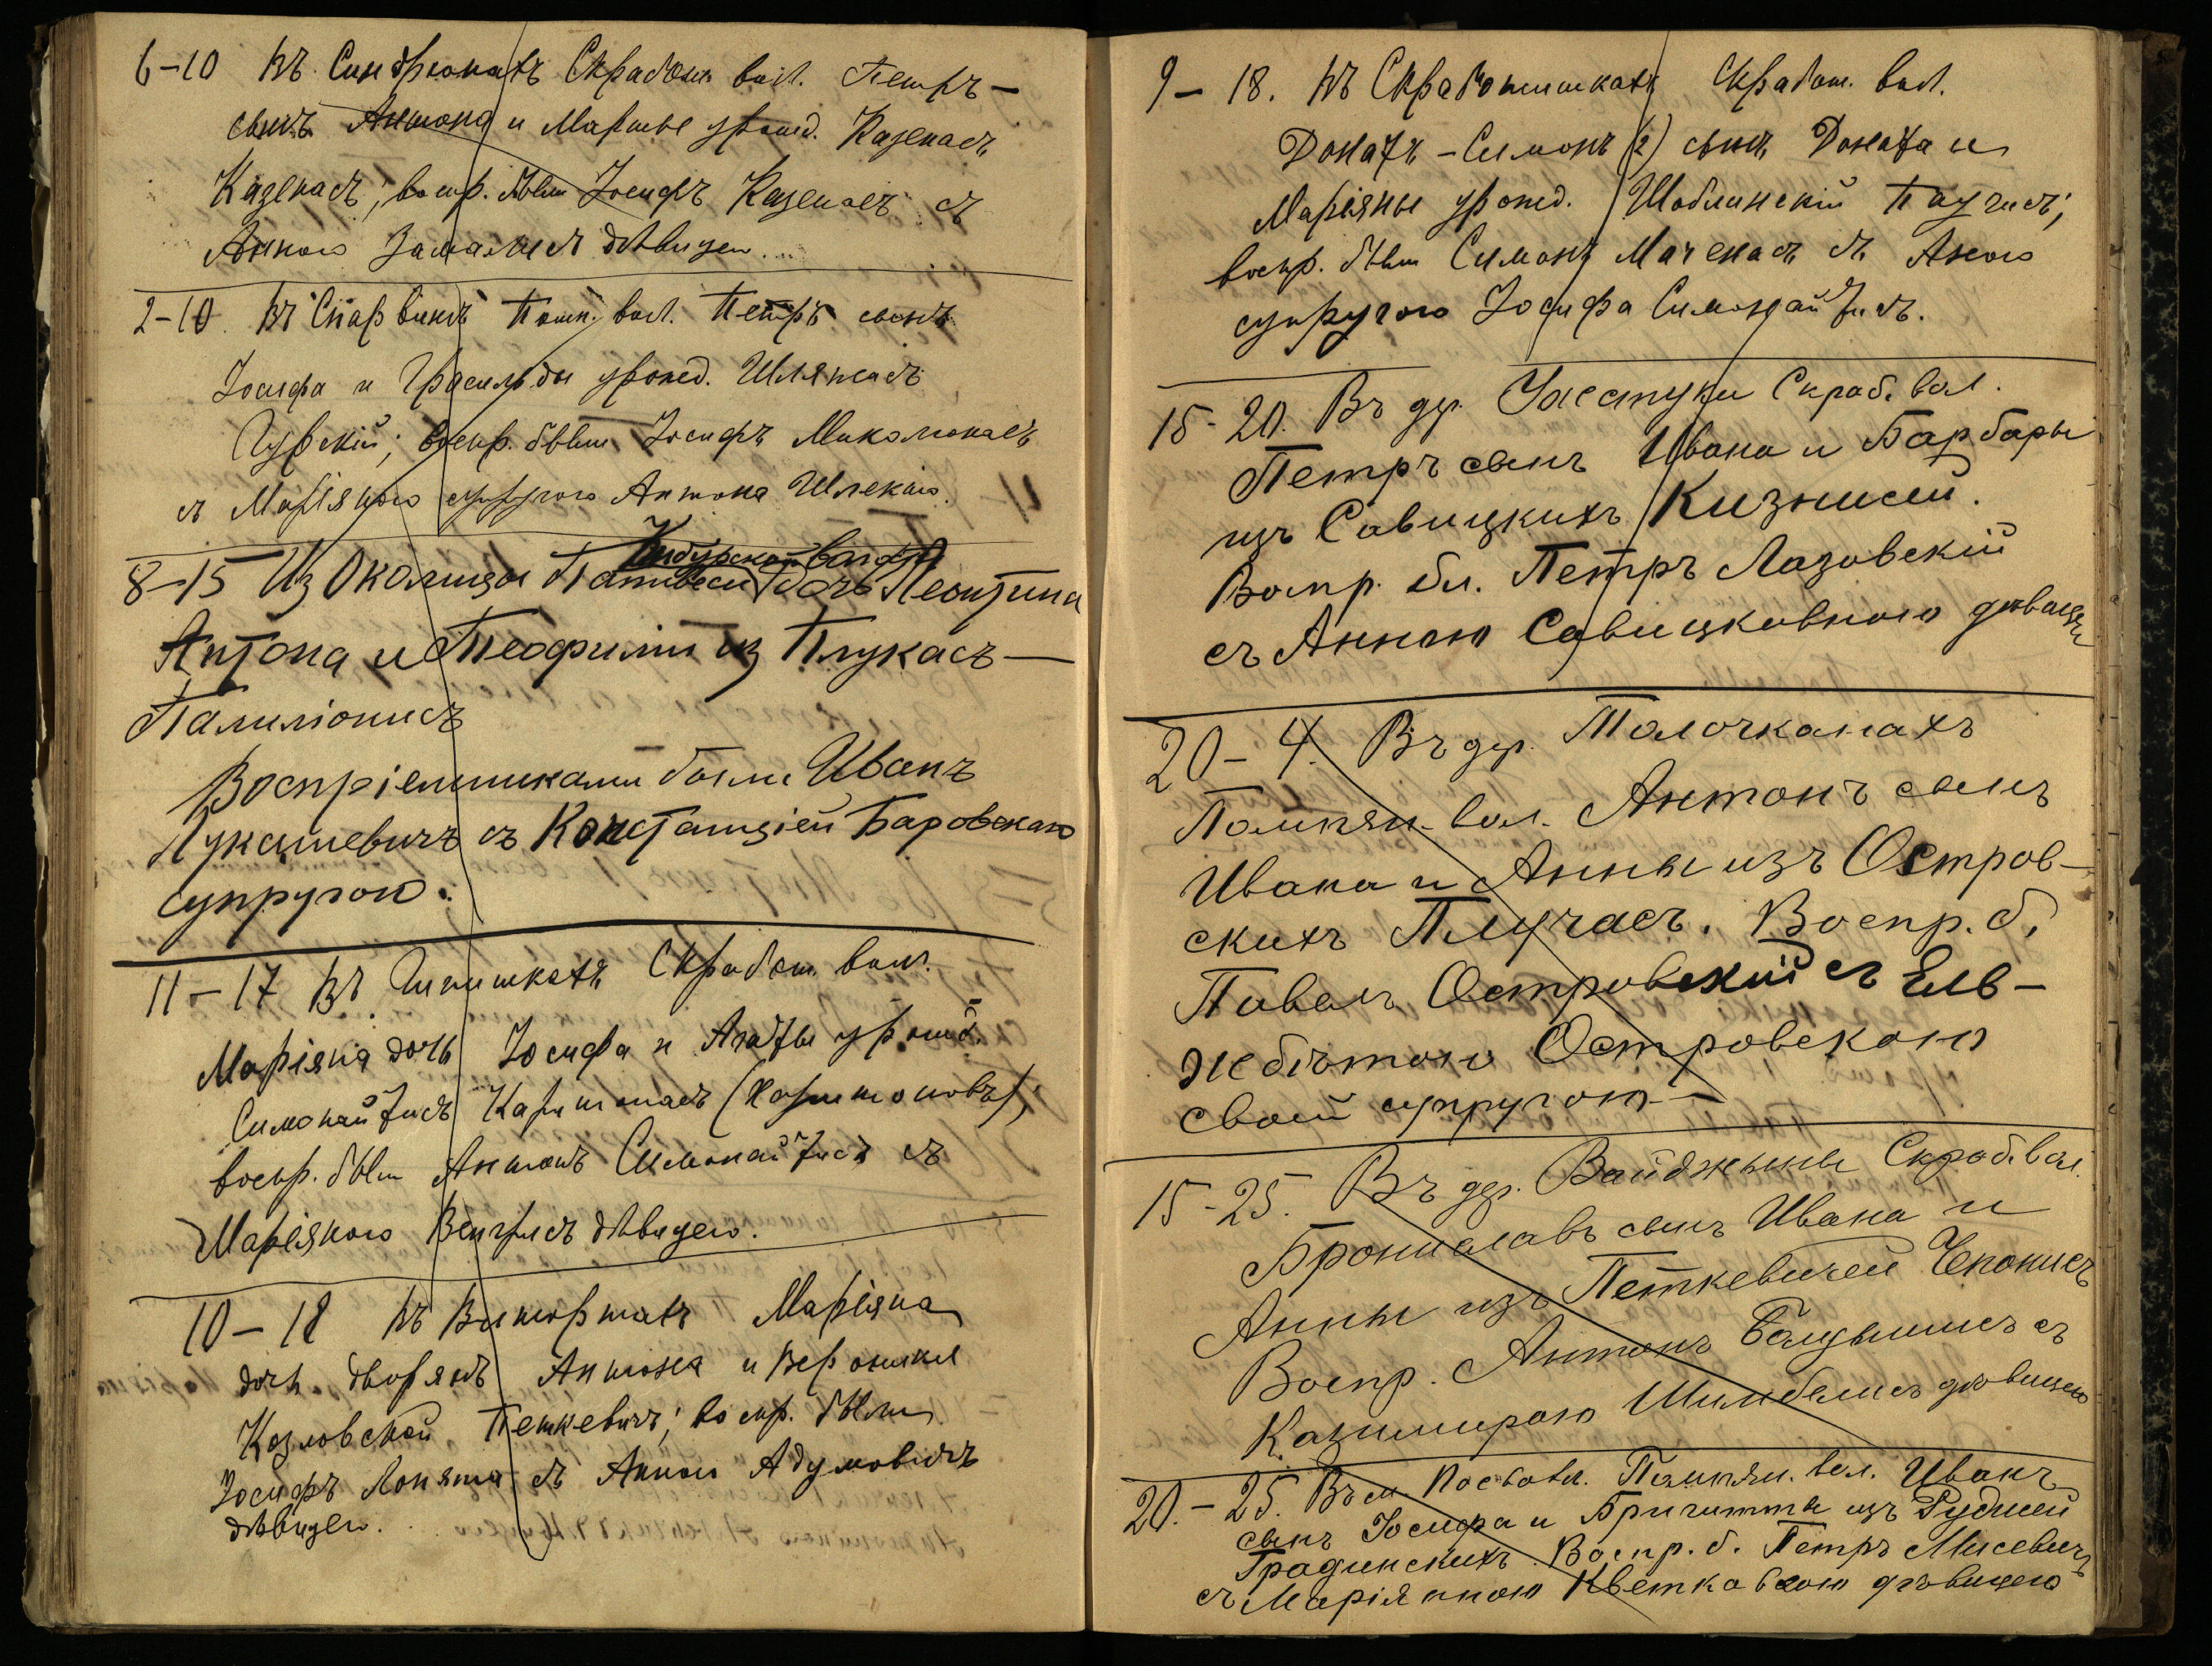 6-10 Въ Синдріонахъ Скработ. вол. Петръ-
сынъ Антона и Марты урожд. Казенасъ
Казенасъ; воспр. были Іосифъ Казенасъ съ
Анною дѣвицею.
2-10. Въ Пошк. вол. Петръ сынъ
Іосифа и Урожд.
воспр. были Іосифъ Миколюнасъ
съ Маріяною супругою Антона
8-15 Изъ Околицы дочь Леонтина
Антона и Теофиліи изъ Плукасъ-
Палиліонисъ
Воспріемниками были Иванъ
Лукашевичъ съ Констанціей Боровскою
супругою.
11-17 Въ Скработ. вол.
Маріяна дочь Іосифа и Агаты урожд.
Симонайтисъ Харитонасъ (Харитоновъ);
воспр. были Антонъ Симонайтисъ съ
Маріяною дѣвицею.
10-18 Въ Маріяна
дочь дворянъ Антона и Вероники
Козловской Петкевичъ; воспр. были
Іосифъ Лопята съ Анною Адумовичъ
дѣвицею.
9-18. Въ Скработишкахъ Скработ. вол.
Донатъ-Симонъ (2) сынъ Доната и
Маріяны урожд. Шоблинскій
воспр. были Симонъ Маченасъ съ Анною
супругою Іосифа Симонайтисъ.
15-20. Въ дер. Скраб. вол.
Петръ сынъ Ивана и Барбары
изъ Савицкихъ
Воспр. бл. Петръ Лазовскій
съ Анною Савицковною дѣвицею
20-4. Въ дер. Толочканахъ
Помпян. вол. Антонъ сынъ
Ивана и Анны изъ Остров-
скихъ Плучасъ. Воспр. б.
Павелъ Островскій съ Ель-
жбѣтою Островскою
своей супругою-
15-25. Въ дер. Скраб. вол.
Брониславъ сынъ Ивана и
Анны изъ Петкевичей Чепонисъ
Воспр. Антонъ съ
Казимирою дѣвицею
20.-25. Въ Помпян. вол. Иванъ
сынъ Іосифа и Бригитты изъ
Градинскихъ. Воспр. б. Петръ Мисевичъ
съ Маріянною Квѣтковскою дѣвицею